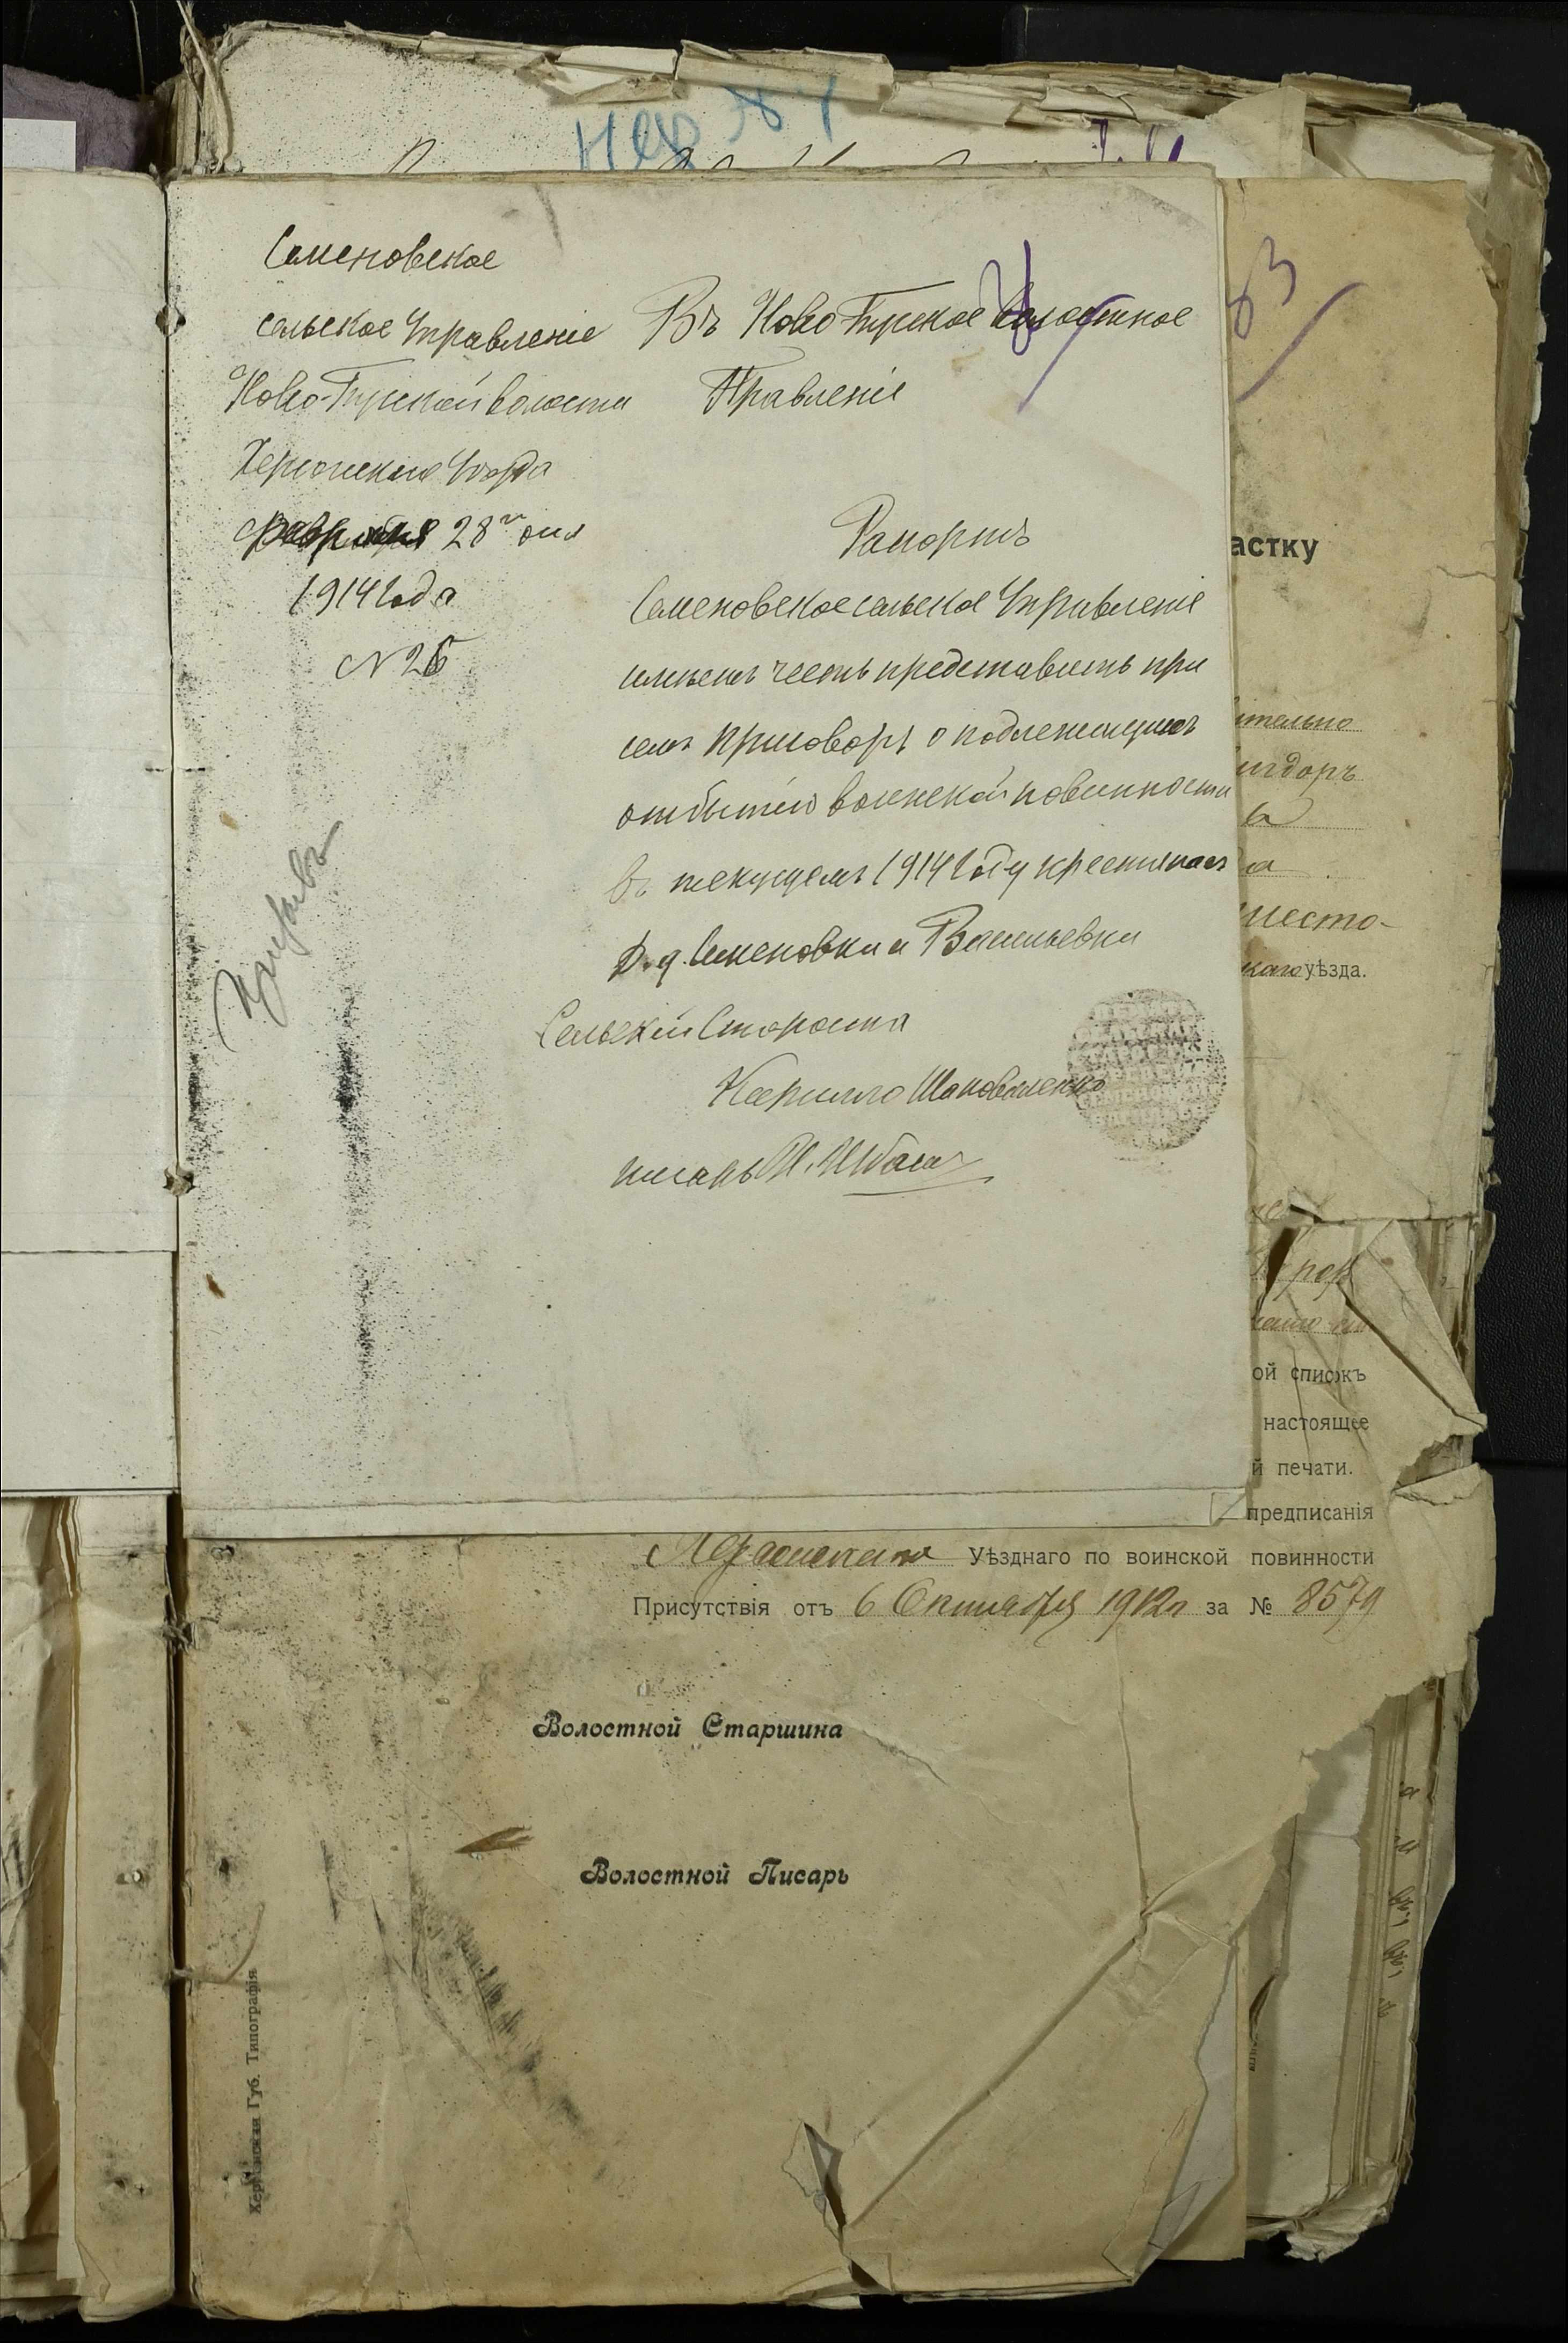 Семеновское
сельское Управленіе
Ново-Бугской волости
Херсонскаго Уѣзда
Февраля 28 дня
1914 Года
N 26
Въ Ново Бугское Волостное
Правленіе
Рапортъ
Семеновское сельское Управленіе
имѣетъ честь представить при
семъ приговоръ о подлежащихъ
отбытію воинской повинности
въ текущемъ 1914 Году крестьянахъ
Семеновки и Васильевки
Сельскій Староста
Кирилло Шаповаленко
писарь
астку
ительно
уѣзда.
ой списокъ
настоящее
й печати.
предписанія
Херсонскаго Уѣзднаго по воинской повинности
Присутствія отъ 6 Октября 1912г за № 8579
Волостной Старшина
Волостной Писарь
Херсонская Губ. Типографія